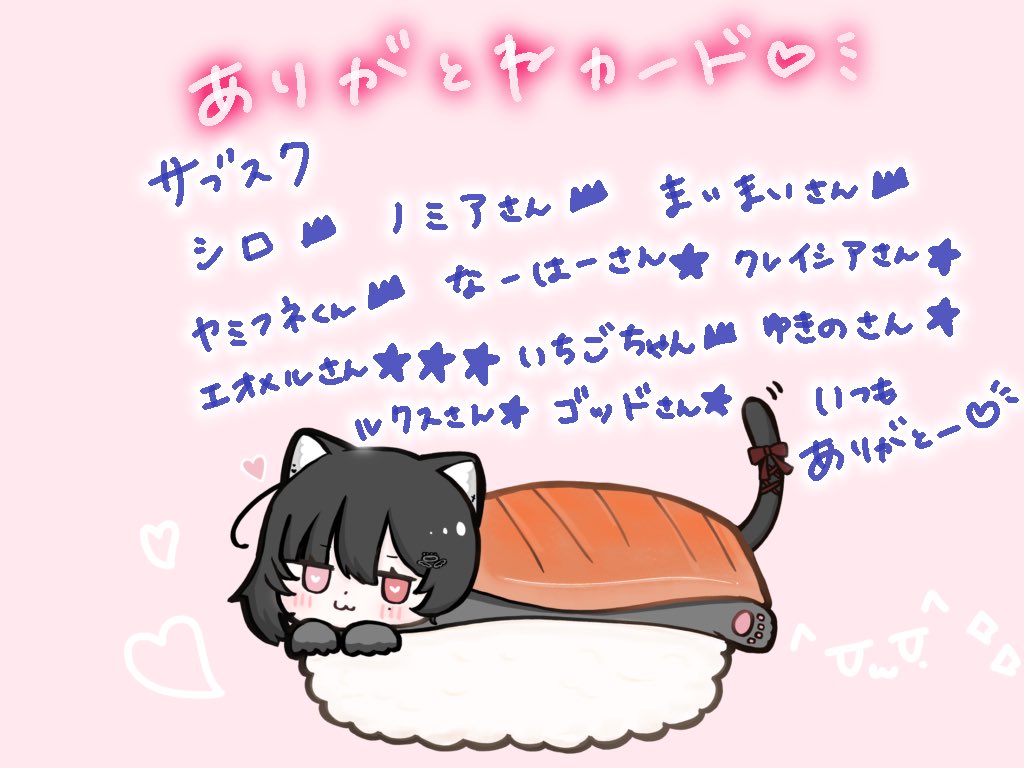 ありがとねカード♡
サブスク
シロ ノミアさん まぃまぃさん
ヤミフネくん なーはーさん★ クレイシアさん★
エオメルさん★★★ いちごちゃん ゆきのさん★
ルクスさん★ ゴッドさん★ いつも
ありがとー♡